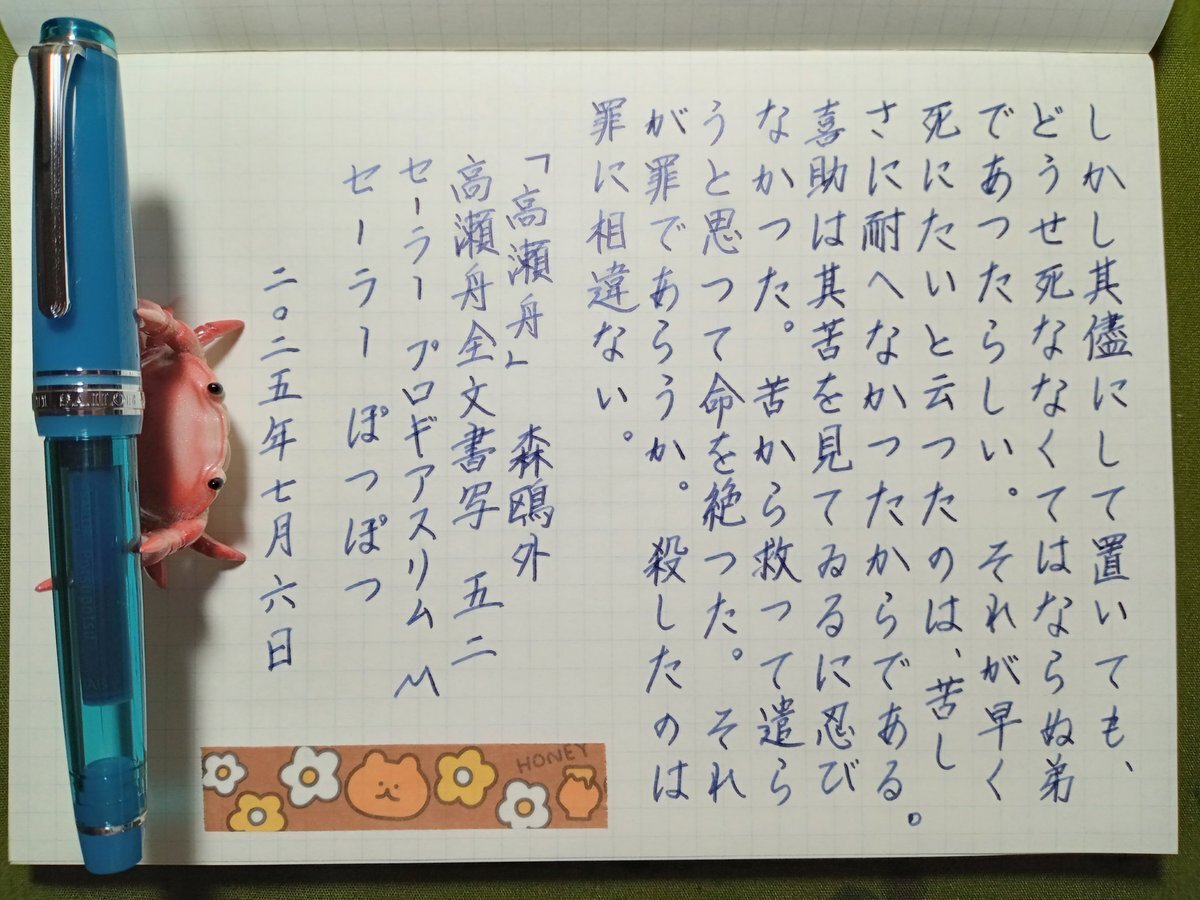 しかし其儘にして置いても、
どうせ死ななくてはならぬ弟
であつたらしい。それが早く
死にたいと云つたのは、苦し
さに耐へなかつたからである。
喜助は其苦を見てゐるに忍び
なかつた。苦から救つて遣ら
うと思つて命を絶つた。それ
が罪であらうか。殺したのは
罪に相違ない。
「高瀬舟」 森鴎外
高瀬舟全文書写 五二
セーラー プロギアスリム M
セーラー ぽつっぽつ
二〇二五年七月六日
HONEY